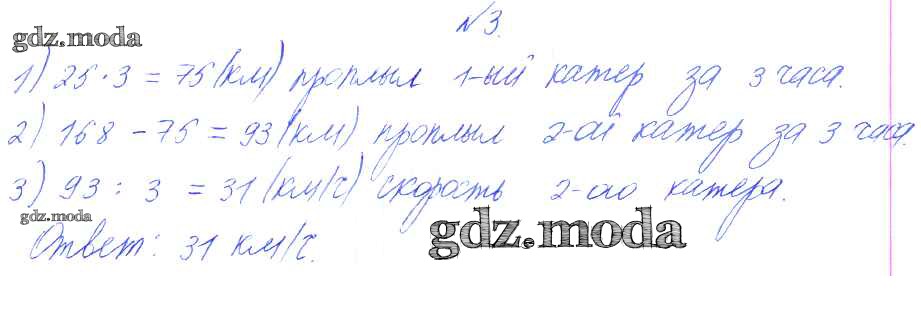 №3.
gdz.moda
1) 25 · 3 = 75 (км) проплыл 1-ый катер за 3 часа.
2) 168 - 75 = 93 (км) проплыл 2-ой катер за 3 часа.
3) 93 : 3 = 31 (км/ч) скорость 2-ого катера.
gdz.moda
Ответ: 31 км/ч.
gdz.moda